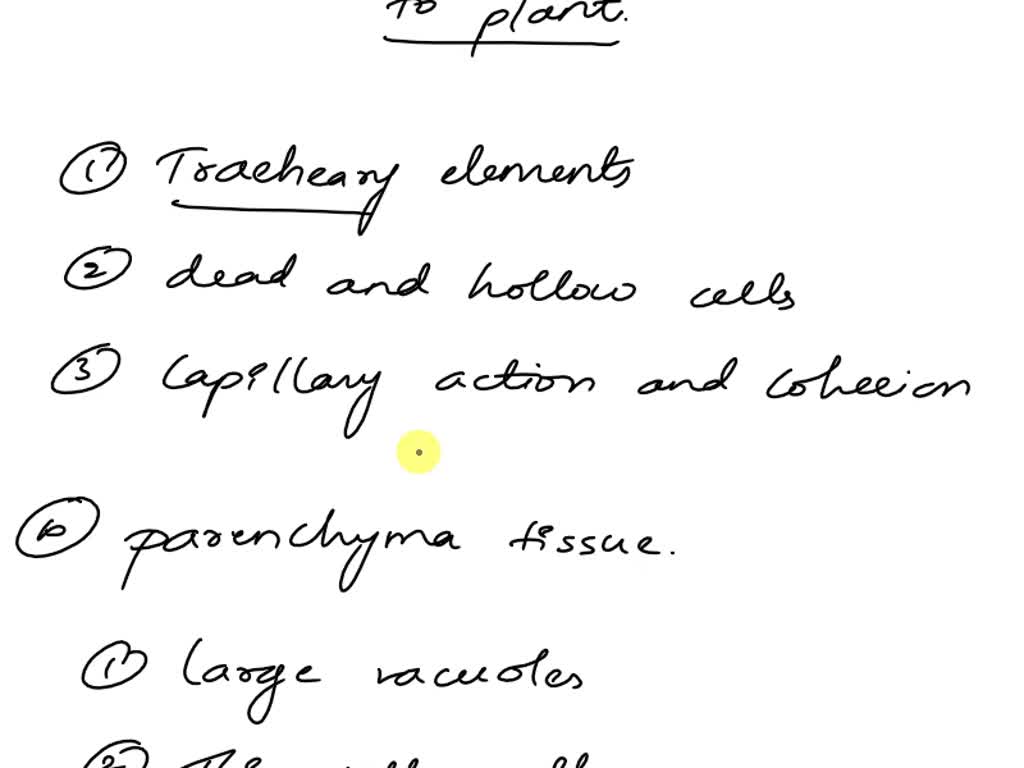 to plant.
① Tracheary elements
② dead and hollow cells
③ Capillary action and cohesion
ⓑ parenchyma tissue.
① Large vacuoles
②